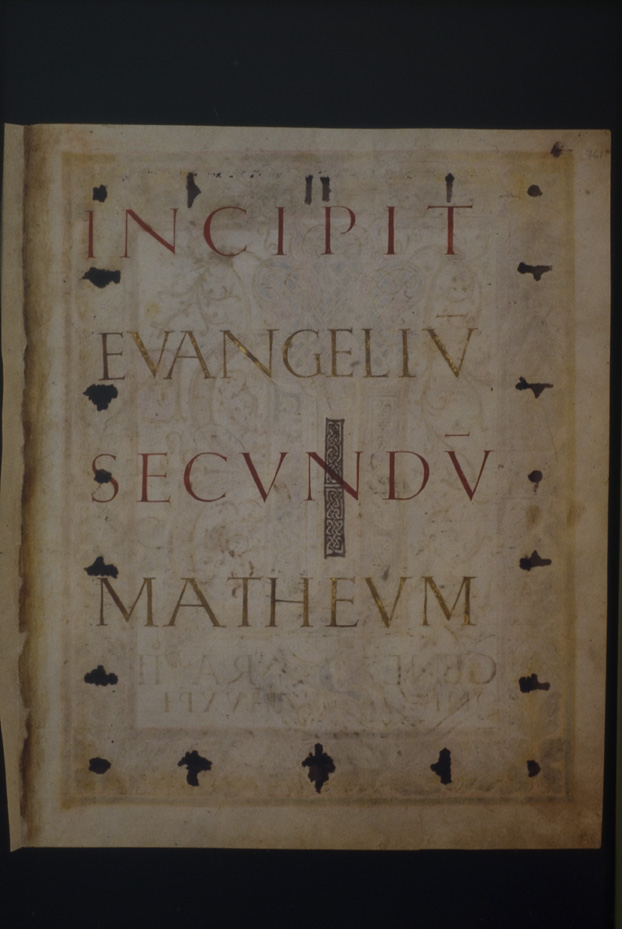 INCIPIT
EVANGELIV̄
SECVNDV̄
MATHEVM